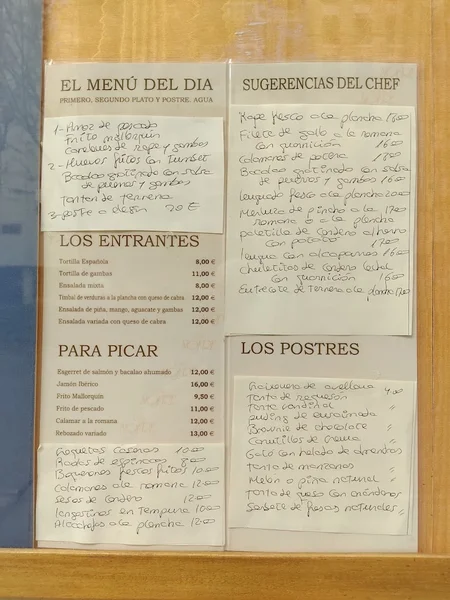 EL MENÚ DEL DIA
PRIMERO, SEGUNDO PLATO Y POSTRE, AGUA
1- Arroz de pescado
Frito mallorquin
Canelones de rape y gambas
2- Huevos fritos con tumbet
Bacalao gratinado con salsa
de puerros y gambas
de ternera
3- poste a elegir 20 €
LOS ENTRANTES
Tortilla Española 8,00 €
Tortilla de gambas 11,00 €
Ensalada mixta 8,00 €
Timbal de verduras a la plancha con queso de cabra 12,00 €
Ensalada de piña, mango, aguacate y gambas 12,00 €
Ensalada variada con queso de cabra 12,00 €
PARA PICAR
Esgerret de salmón y bacalao ahumado 12,00 €
Jamón Ibérico 16,00 €
Frito Mallorquín 9,50 €
Frito de pescado 11,00 €
Calamar a la romana 12,00 €
Rebozado variado 13,00 €
Croquetas caseras 10.00
de espinacas 8.00
Boquerones frescos fritos 10.00
Calamares a la romana 12.00
Sesos de cordero 12.00
langostinos en tempura 10.00
Alcachofas a la plancha 12.00
SUGERENCIAS DEL CHEF
Rape fresco a la plancha 18.00
Filete de gallo a la romana
con guarnición 16.00
Calamares de potera 17.00
Bacalao gratinado con salsa
de puerros y gambas 16.00
lenguado fresco a la plancha 20.00
Merluza de pincho a la 17.00
romana o a la plancha
paletilla de cordero al horno
con patata 17.00
lengua con alcaparras 16.00
Chuletitas de cordero lechal
con guarnición 16.00
Entrecote de ternera a la plancha 17.00
LOS POSTRES
de avellana 4.00
Tarta de requeson "
Tarta "
puding de ensaimada "
Brownie de chocolate "
Canutillos de crema "
Gató con helado de almendras
Tarta de manzana "
Melon o piña natural "
Tarta de queso con arándanos
Sorbete de fresas naturales "